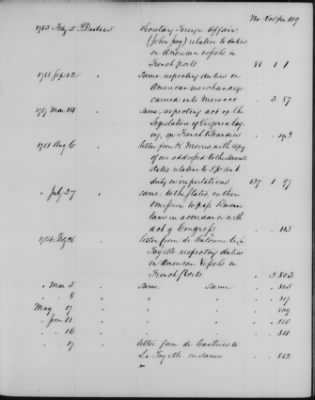 No. Vol. pa. 109
1785 Feby 5 Duties Secretary Foreign Affairs
(John Jay) relative to duties
on American vessels in
French ports 81 2 1
1785 Sep. 12 " Same, respecting duties on
American merchandize
carried into Morocco " 2 57
1787 Mar 14 " Same, respecting act of the
Legislature of Virginia
on French Brandies " " 193
1781 Aug 6 " letter from R Morris with copy
of one addressed to the several
States, relative to 5 pr cent
duty on importations 137 1 97
" July 27 " same to the States, on their
omission to pass Revenue
laws in accordance with
act of Congress " " 113
letter from de Calonne to La
Fayette respecting duties
on American Vessels in
French Ports " 2 503
" Mar 5 " same same " " 505
" " 8 " " " " " 507
May 17 " " " " " 509
" Jun 11 " " " " " 510
" " 16 " " " " " 511
" " 17 letter from de Castries to
La Fayette on same " " 512